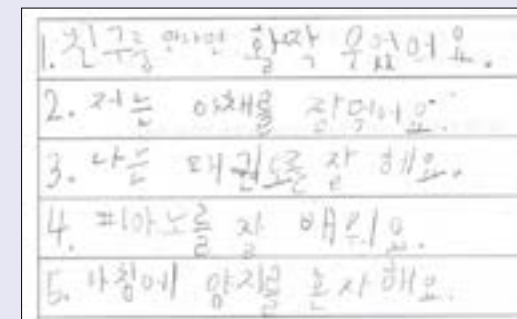 1. 친구를 만나면 활짝 우섰어요.
2. 저는 야채를 잘먹어요.
3. 나는 태권도를 잘 해요.
4. 피아노를 잘 배워요.
5. 아침에 양치를 혼자 해요.